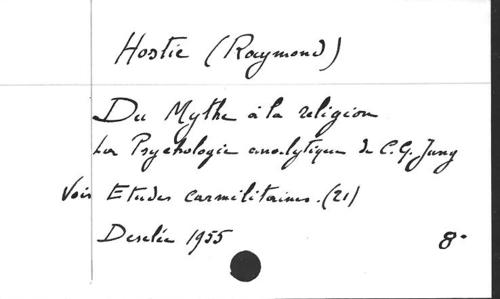 Hostie (Raymond)
Du Mythe à la religion
La Psychologie analytique de C.G. Jung
Voir Etudes carmélitaines. (21)
Desclée 1955 8°